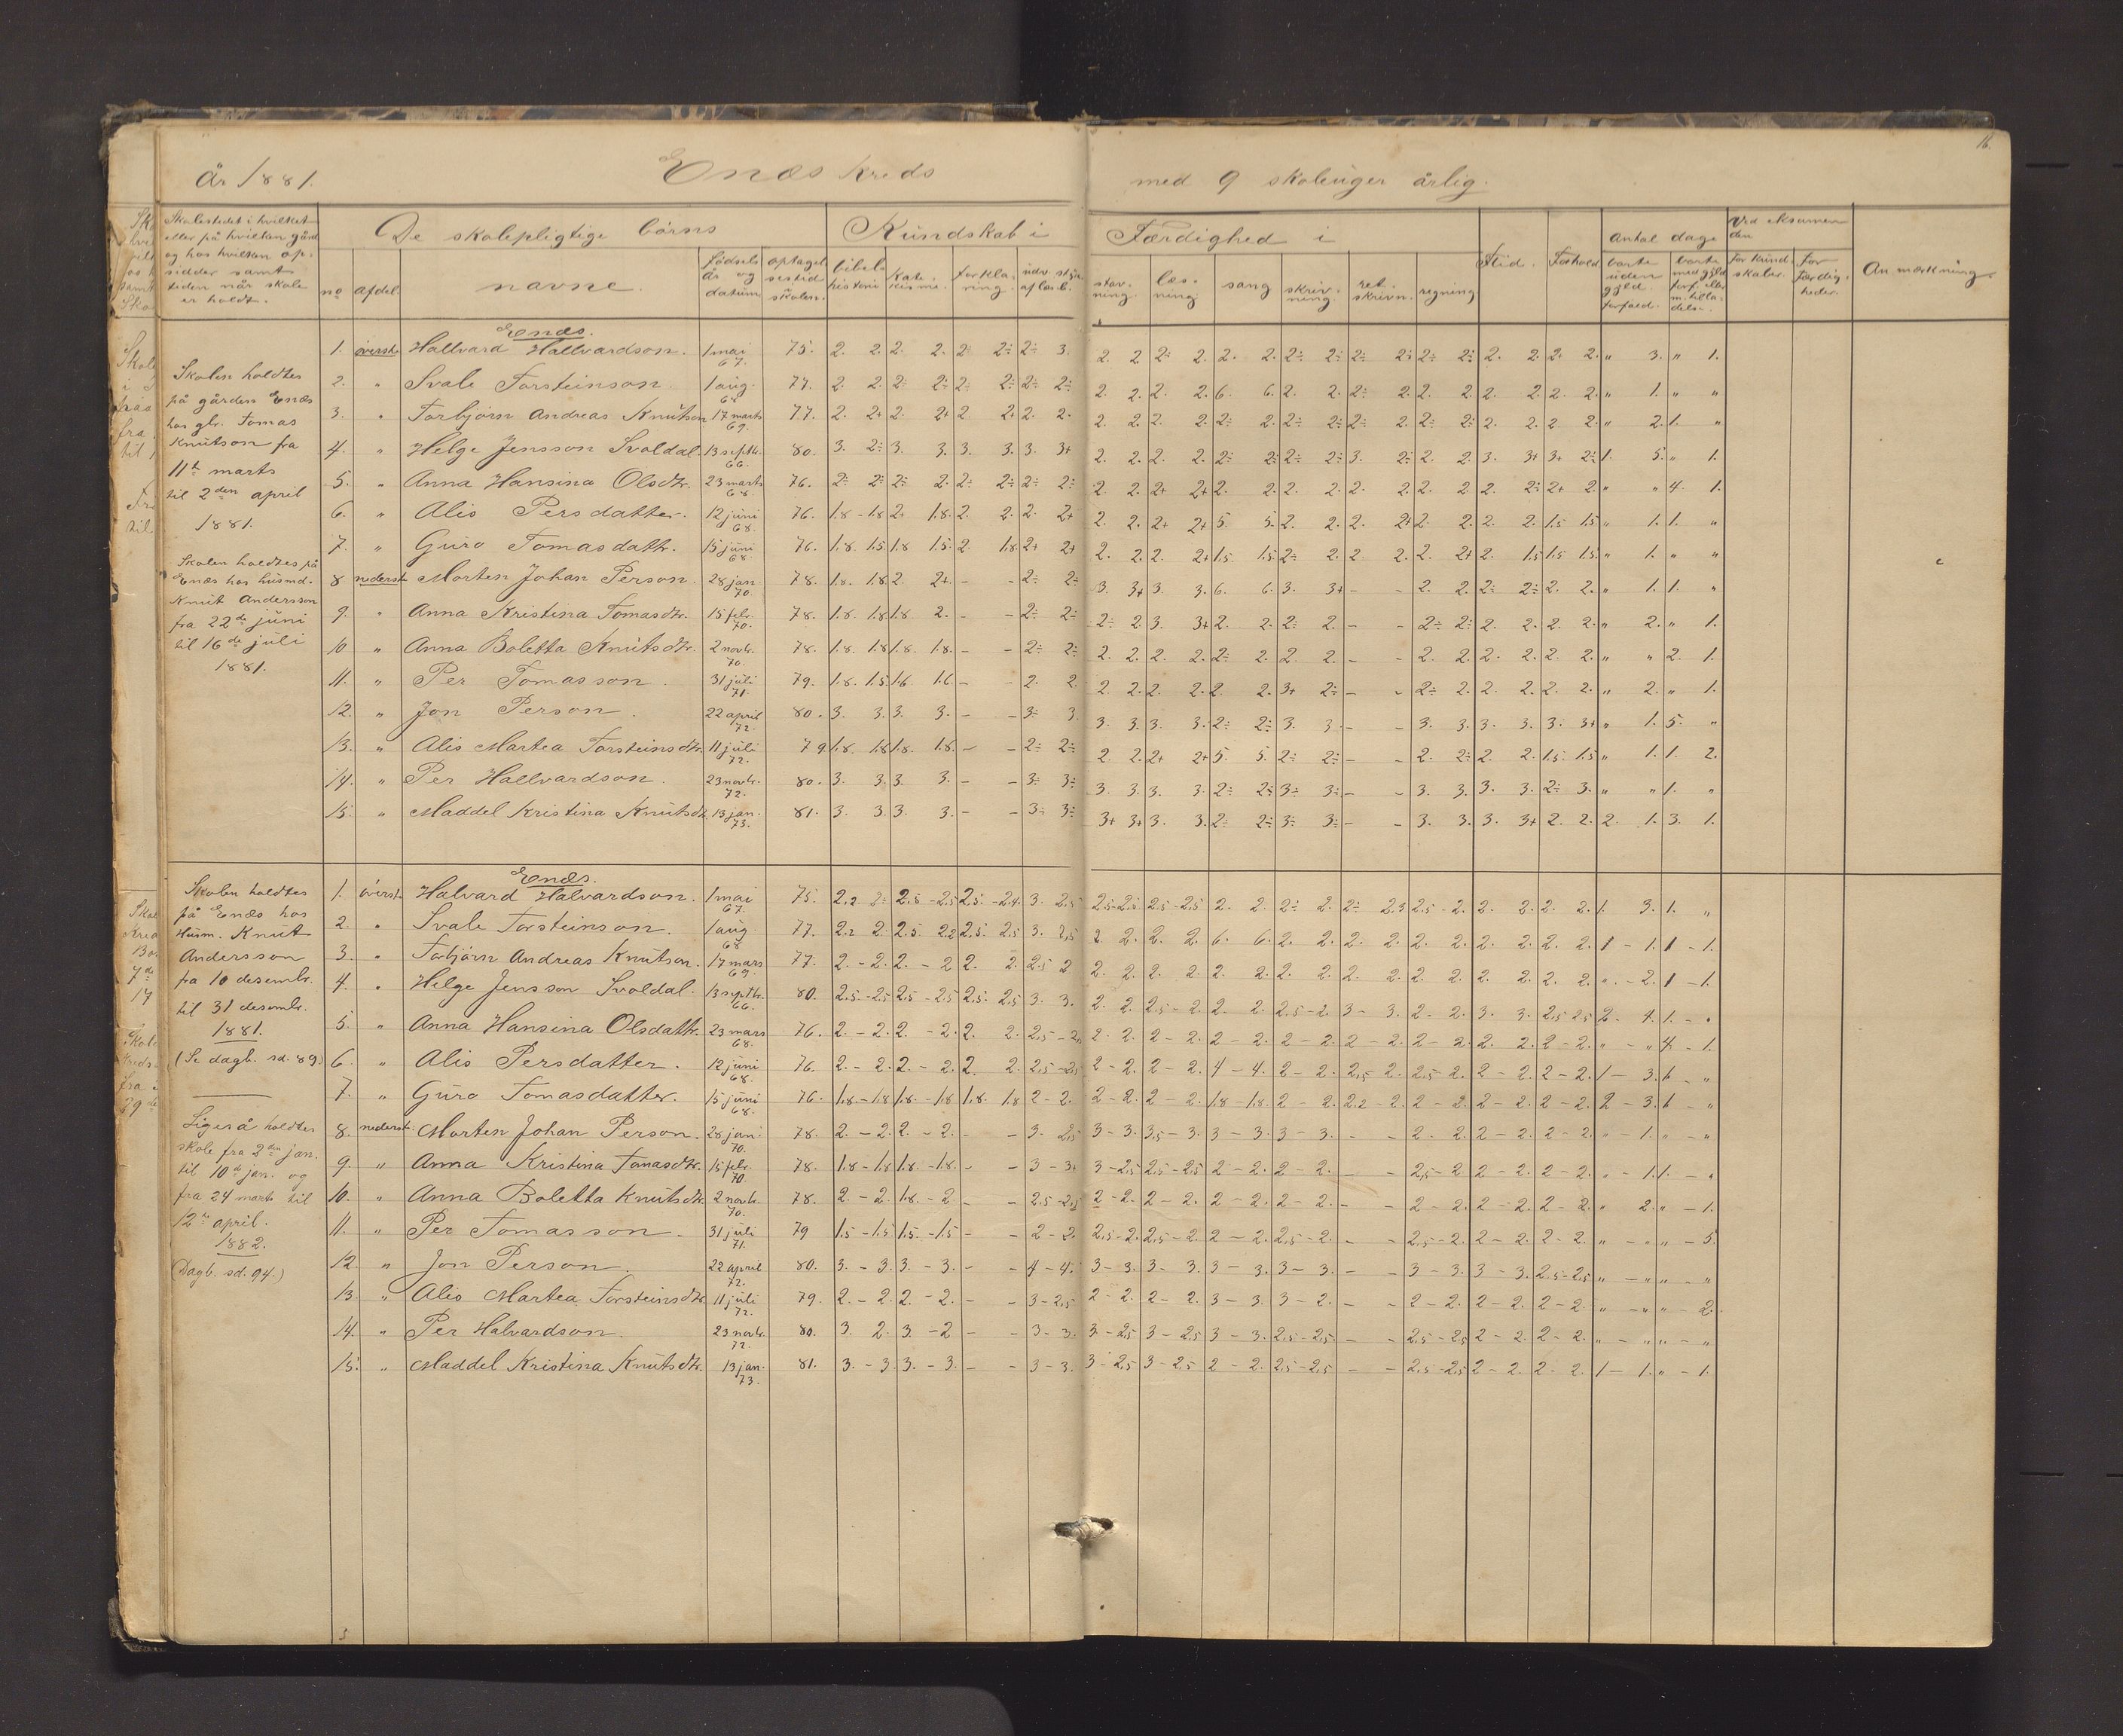 16.
År 1881. Enæs kreds med 9 skoleuger årlig.
Skolestedet i hvilket eller på hvilken gård og hos hvilken opsidder samt tiden når skole er holdt.
De skolepligtige børns
Kundskab i
Færdighed i
Flid. Forhold
Antal dage
Ved eksamen den
Anmærkning
no afdel. navne. fødsels år og datum optagelsestid i skolen.
bibelhistorie katekisme. forklaring.
stavning. læsning sang skrivning. retskrivn. regning
borte uden gyld. forfald.
for kundskaber. for færdigheder.
Enæs.
Skolen holdtes
på gården Enæs
hos gbr. Tomas
Knutson fra
11te marts
til 2den april
1881.
Skolen holdtes på
Enæs hos husmd.
Knut Andersson
fra 22de juni
til 16de juli
1881.
1. øverst. Hallvard Hallvardson. 1 mai 67. 75. 2. 2. 2. 2. 2÷ 2÷ 2÷ 3. 2. 2 2÷ 2. 2. 2. 2÷ 2÷ 2÷ 2÷ 2÷ 2÷ 2. 2. 2. 2. " 3. " 1.
2. " Svale Torsteinson. 1 aug. 68 77. 2. 2. 2÷ 2÷ 2÷ 2÷ 2÷ 2÷ 2. 2. 2. 2. 6. 6. 2. 2. 2÷ 2. 2. 2. 2. 2. 2. 2. " 1. " "
3. " Torbjørn Andreas Knutson 17 marts 69. 77. 2. 2+ 2. 2+ 2 2+ 2. 2. 2. 2. 2. 2. 2÷ 2. 2÷ 2÷ 2÷ 2. 2÷ 2÷ 2. 2. 2 2. " 2. 1. "
4. " Helge Jensson Svoldal. 13 septb. 66. 80. 3. 2÷ 3. 3. 3. 3. 3. 3+ 2. 2. 2. 2. 2÷ 2÷ 2÷ 2÷ 3. 2÷ 2. 2. 3. 3+ 3+ 2÷ 1. 5. " 1.
5. " Anna Hansina Olsdtr. 23 marts 68. 76. 2÷ 2÷ 2÷ 2. 2÷ 2÷ 2÷ 2÷ 2. 2. 2+ 2+ 2. 2. 2. 2. 2. 2. 2. 2 2. 2÷ 2+ 2. " " 4. 1.
6. " Alis Persdatter. 12 juni 68. 76. 1.8 - 1.8 2. 1.8. 2. 2. 2. 2+ 2. 2. 2+ 2+ 5. 5. 2. 2. 2. 2+ 2. 2. 2. 2. 1.5 1.5 " 1. 1. "
7. " Guro Tomasdattr. 15 juni 68 76. 1.8. 1.5 1.8 1.5. 2. 1.8 2+ 2+ 2. 2. 2. 2+ 1.5 1.5 2÷ 2. 2 2. 2. 2+ 2. 1.5 1.5 1.5 " 1. " "
8 nederst. Morten Johan Person. 28 jan. 70. 78. 1.8. 1.8 2. 2+ - - 2÷ 2÷ 3. 3+ 3. 3. 6. 6. 3. 3+ - - 2. 2. 2÷ 2÷ 2. 2. " 1. 1. "
9. " Anna Kristina Tomasdtr. 15 febr. 70. 78. 1.8. 1.8 1.8 2. - - 2÷ 2÷ 2÷ 2. 3. 3+ 2. 2. 2÷ 2. - - 2÷ 2÷ 2. 2. 2. 2. " 2. " 1.
10 " Anna Boletta Knutsdtr. 2 novbr. 70. 78. 1.8. 1.8 1.8. 1.8. - - 2÷ 2÷ 2. 2. 2. 2. 2÷ 2. 2. 2. - - 2. 2. 2. 2. 2. 2. " " 2. 1.
11. " Per Tomasson. 31 juli 71. 79. 1.8. 1.5 1.6 1.6. - - 2. 2. 2. 2. 2. 2. 2. 2. 3+ 2÷ - - 2÷ 2. 2. 2. 2. 2. " 2. " 1.
12. " Jon Person. 22 april 72. 80. 3. 3. 3. 3. - - 3÷ 3. 3. 3. 3. 3. 2÷ 2÷ 3. 3. - - 3. 3. 3. 3. 3. 3+ " 1. 5. "
13. " Alis Martea Torsteinsdtr. 11 juli 72. 79 1.8. 1.8 1.8. 1.8. - - 2÷ 2÷ 2. 2. 2+ 2+ 5. 5. 2÷ 2÷ - - 2. 2÷ 2. 2. 1.5. 1.5 " 1. 1. 2.
14. " Per Hallvardson. 23 novbr. 72. 80. 3. 3. 3. 3. - - 3÷ 3÷ 3. 3. 3. 3. 2÷ 2÷ 3÷ 3÷ - - 3. 3. 3. 3. 2÷ 3. " " 1. "
15. " Maddel Kristina Knutsdtr. 13 jan. 73. 81. 3. 3. 3. 3. - - 3÷ 3÷ 3+ 3+ 3. 3. 2÷ 2÷ 3÷ 3÷ - - 3. 3. 3. 3+ 2. 2. 2. 1. 3. 1.
Enæs.
Skolen holdtes
på Enæs hos
Husm. Knut
Andersson
fra 10 desembr.
til 31 desembr.
1881.
(Se dagb. sd. 89.)
Ligeså holdtes
skole fra 2den jan.
til 10de jan. og
fra 24 marts til
12te april.
1882.
(Dagb. sd. 94.)
1. øverst. Halvard Halvardson. 1 mai 67. 75. 2.2 2÷ 2.5 - 2.5 2.5. - 2.4. 3. 2.5 2.5-2.5 2.5-2.5 2. 2. 2÷ 2. 2÷ 2.3 2.5-2. 2. 2. 2. 2. 1. 3. 1. "
2. " Svale Torsteinson. 1 aug. 68 77. 2.2 2. 2.5 2.2 2.5. 2.5 3. 2.5 2. 2. 2. 2. 6. 6. 2. 2. 2. 2. 2. 2. 2. 2. 2. 2. 1 - 1. 1 - 1.
3. " Torbjørn Andreas Knutson. 17 mars 69. 77. 2. - 2. 2. - 2 2. 2. 2.5 2 2. 2. 2. 2. 2. 2. 2. 2. 2. 2. 2. 2. 2. 2. 2. 2. " - 2. 1 - 1.
4. " Helge Jensson Svoldal. 13 septbr. 66. 80. 2.5-2.5 2.5-2.5 2.5. 2.5 3. 3. 2. 2. 2.5-2. 2. 2. 2.5-2. 3 - 3. 2 - 2. 3. 3. 2.5 2.5 2. 4. 1. - "
5. " Anna Hansina Olsdattr. 23 mars 68. 76. 2. - 2. 2. - 2. 2. 2. 2.5 - 2.5 2. 2. 2 - 2. 2 - 2. 2 - 2. 2 - 2. 2 - 2. 2. 2. 2 - 2. " - " 4. - 1.
6. " Alis Persdatter. 12 juni 68. 76. 2. - 2. 2. - 2. 2. 2. 2.5-2.5 2 - 2. 2 - 2. 4 - 4. 2 - 2. 2.5 - 2. 2.5 2. 2 - 2. 2 - 2. 1 - 3. 6 - "
7. " Guro Tomasdatter. 15 juni 68. 76. 1.8. - 1.8 1.8. - 1.8 1.8. 1.8 2 - 2. 2 - 2. 2 - 2. 1.8 - 1.8. 2 - 2. 2.2 - 2. 2 - 2. 2 - 2. 2 - 2. 2 - 3. 6 - "
8. nederst. Morten Johan Person. 28 jan. 70. 78. 2. - 2. 2. - 2. - - 3. 2.5 3 - 3. 3.5 - 3. 3 - 3. 3 - 3. - - 2 - 2. 2 - 2. 2 - 2. " - 1. " - "
9. " Anna Kristina Tomasdtr. 15 febr. 70. 78. 1.8 - 1.8 1.8. - 1.8. - - 3 - 3. 3 - 2.5 2.5 - 2.5 2 - 2. 2 - 2. - - 2.5 - 2 2 - 2. 2 - 2. " - 1. 1. - "
10. " Anna Boletta Knutsdtr. 2 novbr. 70. 78. 2. - 2. 1.8. - 2 - - 2.5 - 2.5 2 - 2. 2 - 2. 2 - 2. 2 - 2. - - 2 - 2. 2 - 2. 2 - 2. " 2. " - 1.
11. " Per Tomasson. 31 juli 71. 79 1.5 - 1.5 1.5. - 1.5 - - 2 - 2. 2.5 - 2. 2.5 - 2. 2 - 2. 2.5 - 2. - - 2.5 - 2. 2 - 2. 2 - 2. " - " " - 5.
12. " Jon Person. 22 april 72. 80. 3. - 3. 3. - 3. - - 4 - 4. 3 - 3. 3 - 3. 3 - 3. 3 - 3. - - 3 - 3. 3 - 3. 2.5 - 2.5 " - " " - "
13. " Alis Martea Torsteinsdtr. 11 juli 72. 79. 2. - 2. 2. - 2. - - 3 - 2.5 2 - 2. 2 - 2. 3 - 3. 3 - 2. - - 2 - 2. 2 - 2. 2 - 2. " - " " - 2.
14. " Per Halvardson. 23 novbr. 72. 80. 3. 2. 3. - 2 - - 3 - 3. 3 - 2.5 3 - 2.5 3 - 3. 2.5 - 2.5. - - 2.5 - 2.5 2 - 2. 2 - 2. " - " " - "
15. " Maddel Kristina Knutsdtr. 13 jan. 73. 81. 3. - 3. 3. - 3. - - 3 - 3. 3 - 2.5 3 - 2.5 2 - 2. 2.5 - 2.5 - - 2.5 - 2.5 2 - 2. 2 - 2. 1 - 1. " - 1.